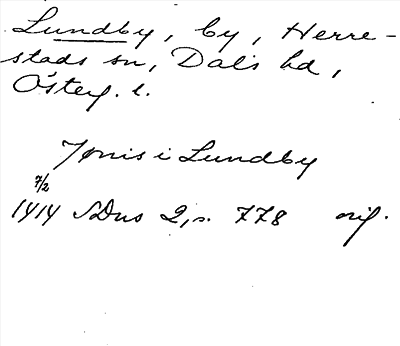 Lundby, by, Herre-
stads sn, Dals hd,
Österg. l.
Jønis i Lundby
7/2
1414 SDns 2, s. 778 orig.